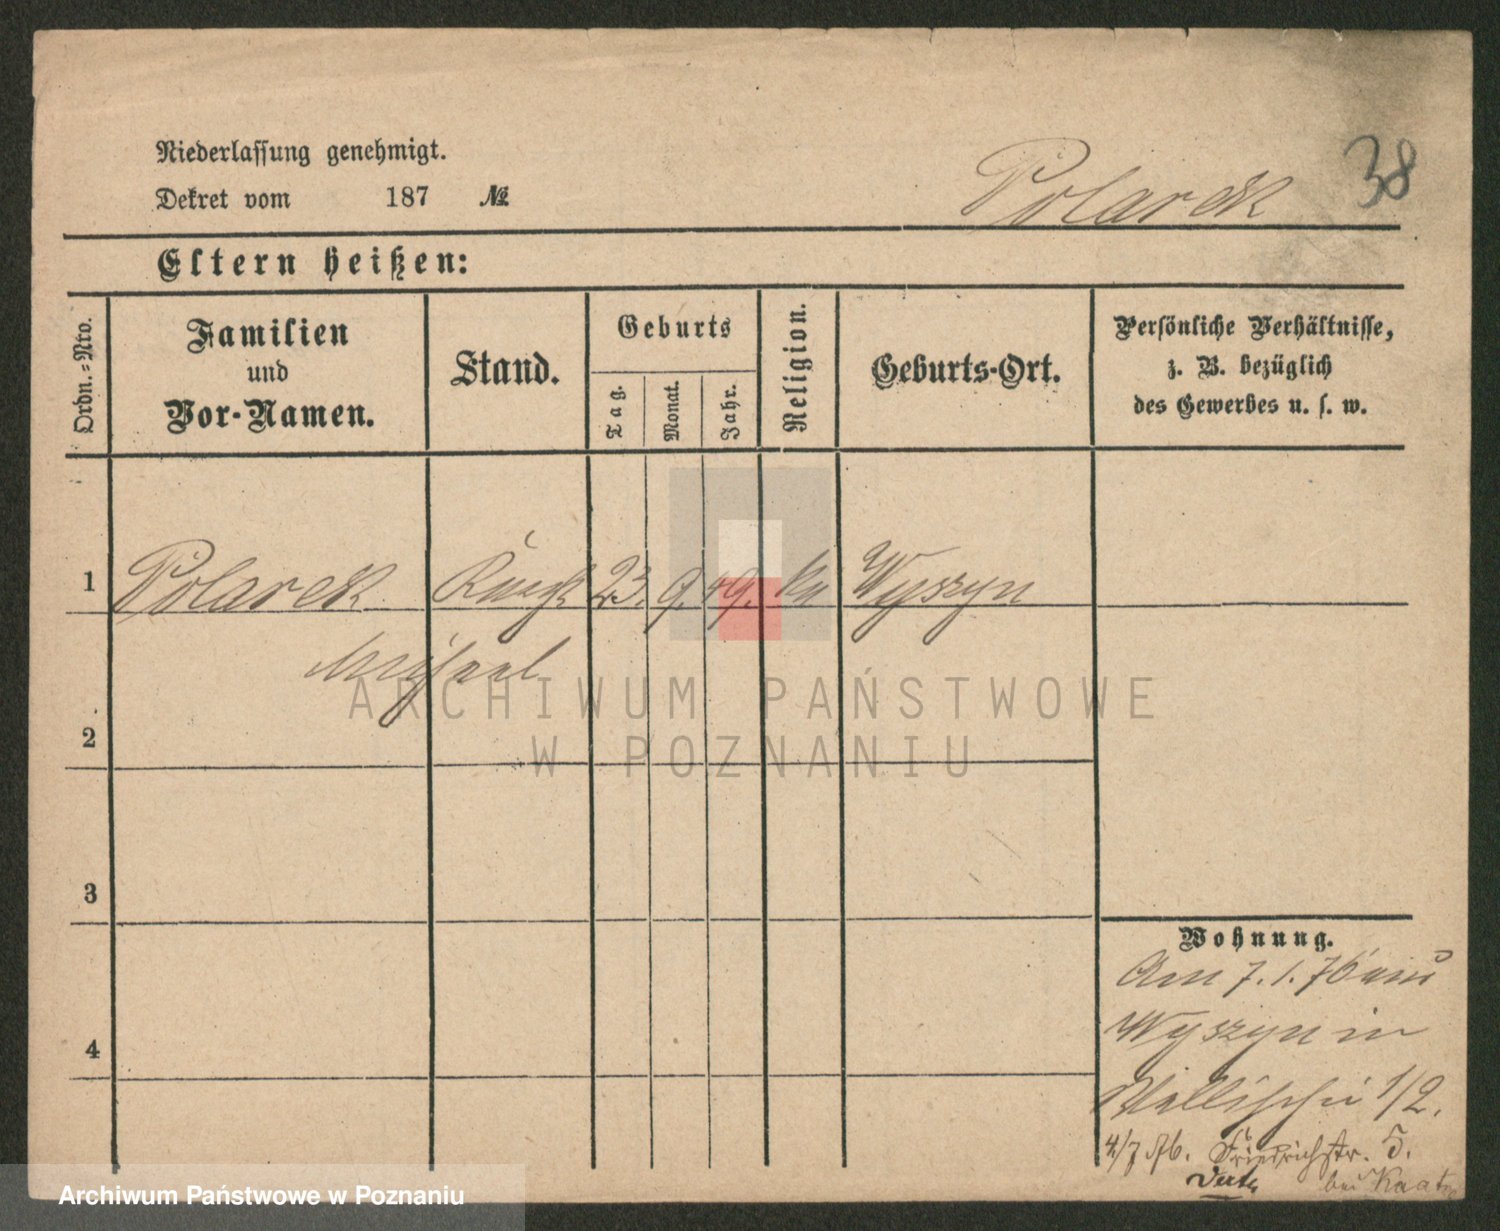 38
Niederlassung genehmigt.
Dekret vom 187 №
Polarek
Eltern heißen:
Ordn.=Nro.
Familien
und
Vor-Namen.
Stand.
Geburts
Tag.
Monat.
Jahr.
Religion.
Geburts-Ort.
Persönliche Verhältnisse,
z. B. bezüglich
des Gewerbes u. s. w.
1 Polarek 23. 9. 49. Wyszyn
ARCHIWUM PAŃSTWOWE
W POZNANIU
2
3
4
Wohnung.
Am 7.1.76 aus
Wyszyn in
Wallischei 1/2.
4/7 76. Friedrichstr. 5.
bei
Archiwum Państwowe w Poznaniu